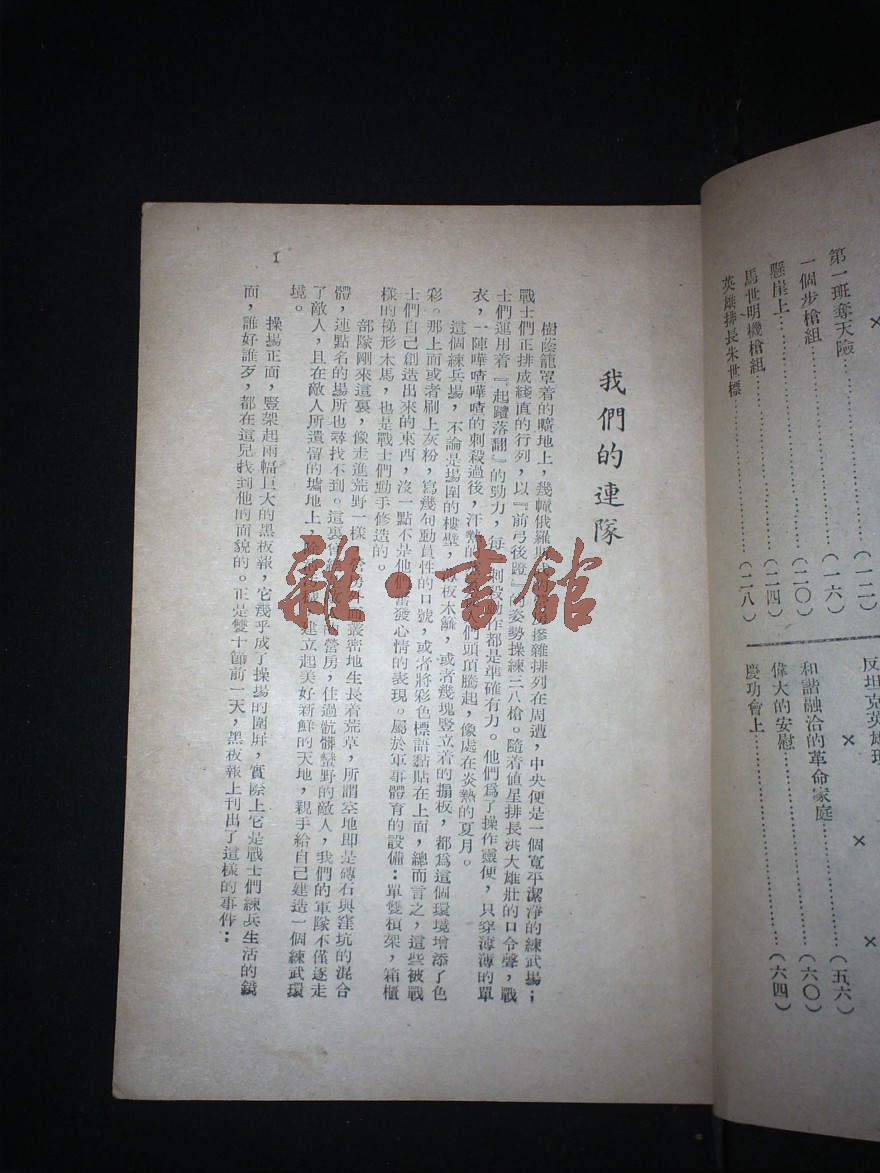 ×
第一班奪天險…………(一二)
一個步槍組…………(一六)
懸崖上…………(二〇)
馬世明機槍組…………(二四)
英雄排長朱世標…………(二八)
反坦克英雄
×
×
×
和諧融洽的革命家庭…………(五六)
偉大的安慰…………(六〇)
慶功會上…………(六四)
我們的連隊
樹蔭籠罩着的曠地上,幾幢俄羅斯摻雜排列在周遭,中央便是一個寬平潔淨的練武場;
戰士們正排成綫直的行列,以『前弓後蹬』的姿勢操練三八槍。隨着值星排長洪大雄壯的口令聲,戰
士們運用着『起躦落翻』的勁力,每刺殺動作都是準確有力。他們爲了操作靈便,只穿薄薄的單
衣,一陣嘩喳嘩喳的刺殺過後,汗熱的們頭頂騰起,像處在炎熱的夏月。
這個練兵場,不論是場圍的樓壁,薄板木籬,或者幾塊豎立着的搨板,都爲這個環境增添了色
彩。那上面或者刷上灰粉,寫幾句動員性的口號,或者將彩色標語黏貼在上面,總而言之,這些被戰
士們自己創造出來的東西,沒一點不是他們奮發心情的表現。屬於軍事體育的設備:單雙槓架,箱櫃
樣的梯形木馬,也是戰士們動手修造的。
部隊剛來這裏,像走進荒野一樣,營房叢密地生長着荒草,所謂空地即是磚石與窪坑的混合
體,連點名的場所也尋找不到。這裏的營房,住過骯髒蠻野的敵人,我們的軍隊不僅逐走
了敵人,且在敵人所遺留的墟地上,建立起美好新鮮的天地,親手給自己建造一個練武環
境。
操場正面,豎架起兩幅巨大的黑板報,它幾乎成了操場的圍屏,實際上它是戰士們練兵生活的鏡
面,誰好誰歹,都在這兒找到他的面貌的。正是雙十節前一天,黑板報上刊出了這樣的事件:
1
雜·書館